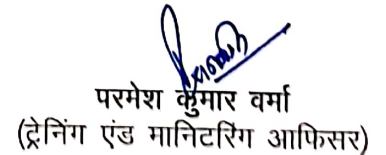 परमेश कुमार वर्मा
(ट्रेनिंग एंड मानिटरिंग आफिसर)